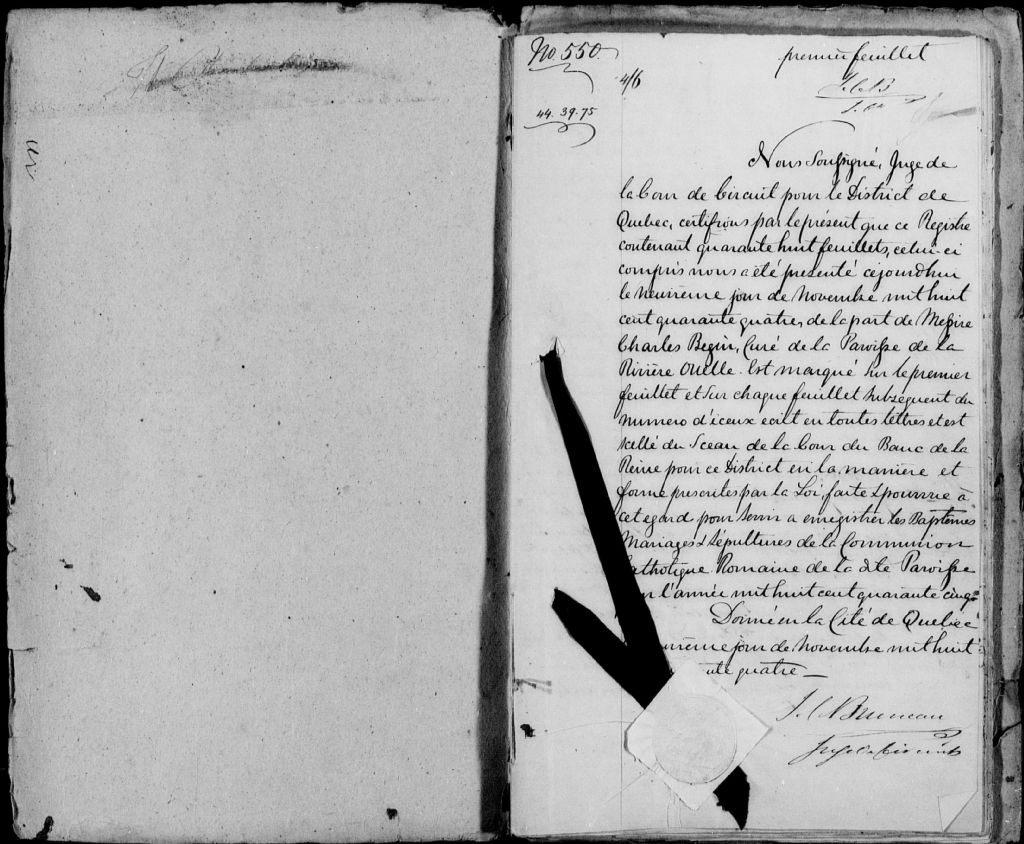 No. 550.
premier feuillet
4/6
J.C.B
44. 39. 75
Nous Soussigné, Juge de
la Cour de Circuit pour le District de
Quebec, certifions par le présent que ce Registre
contenant quarante huit feuillets, celui-ci
compris nous a été présenté cejourdhui
le neuvieme jour de Novembre mil huit
cent quarante quatre, de la part de Messire
Charles Begin, Curé de la Paroisse de la
Rivière Ouelle. Est marqué sur le premier
feuillet et sur chaque feuillet subsequent du
numero d'iceux ecrit en toutes lettres et est
scellé du Sceau de la Cour du Banc de la
Reine pour ce District en la maniere et
forme prescrites par la Loi, faite & pourvue à
cet egard pour servir a enregistrer les Baptêmes
Mariages & Sépultures de la Communion
Catholique Romaine de la dte Paroisse
l'année mil huit cent quarante cinq.
Donné en la Cité de Quebec
jour de Novembre mil huit
quatre
Bruneau
Juge de Circuit